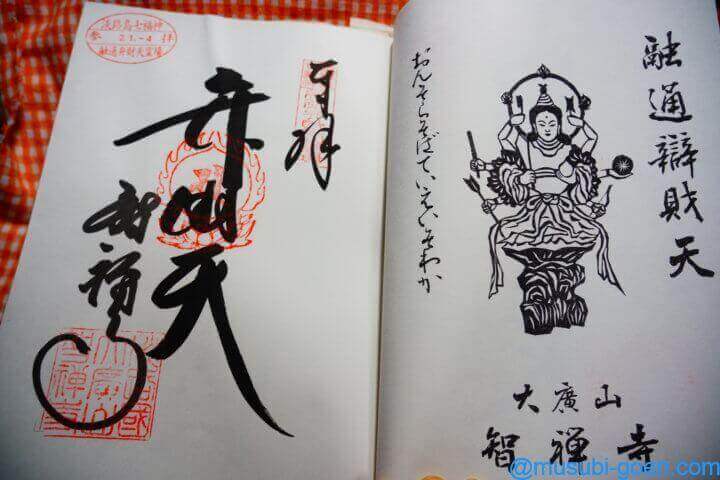 淡路島七福神
参 21.-4 拝
融通弁財天霊場
奉拝
弁財天
智禅寺
融通辯財天
おんそらそばていえいそわか
大廣山
智禅寺
@musubi-goen.com